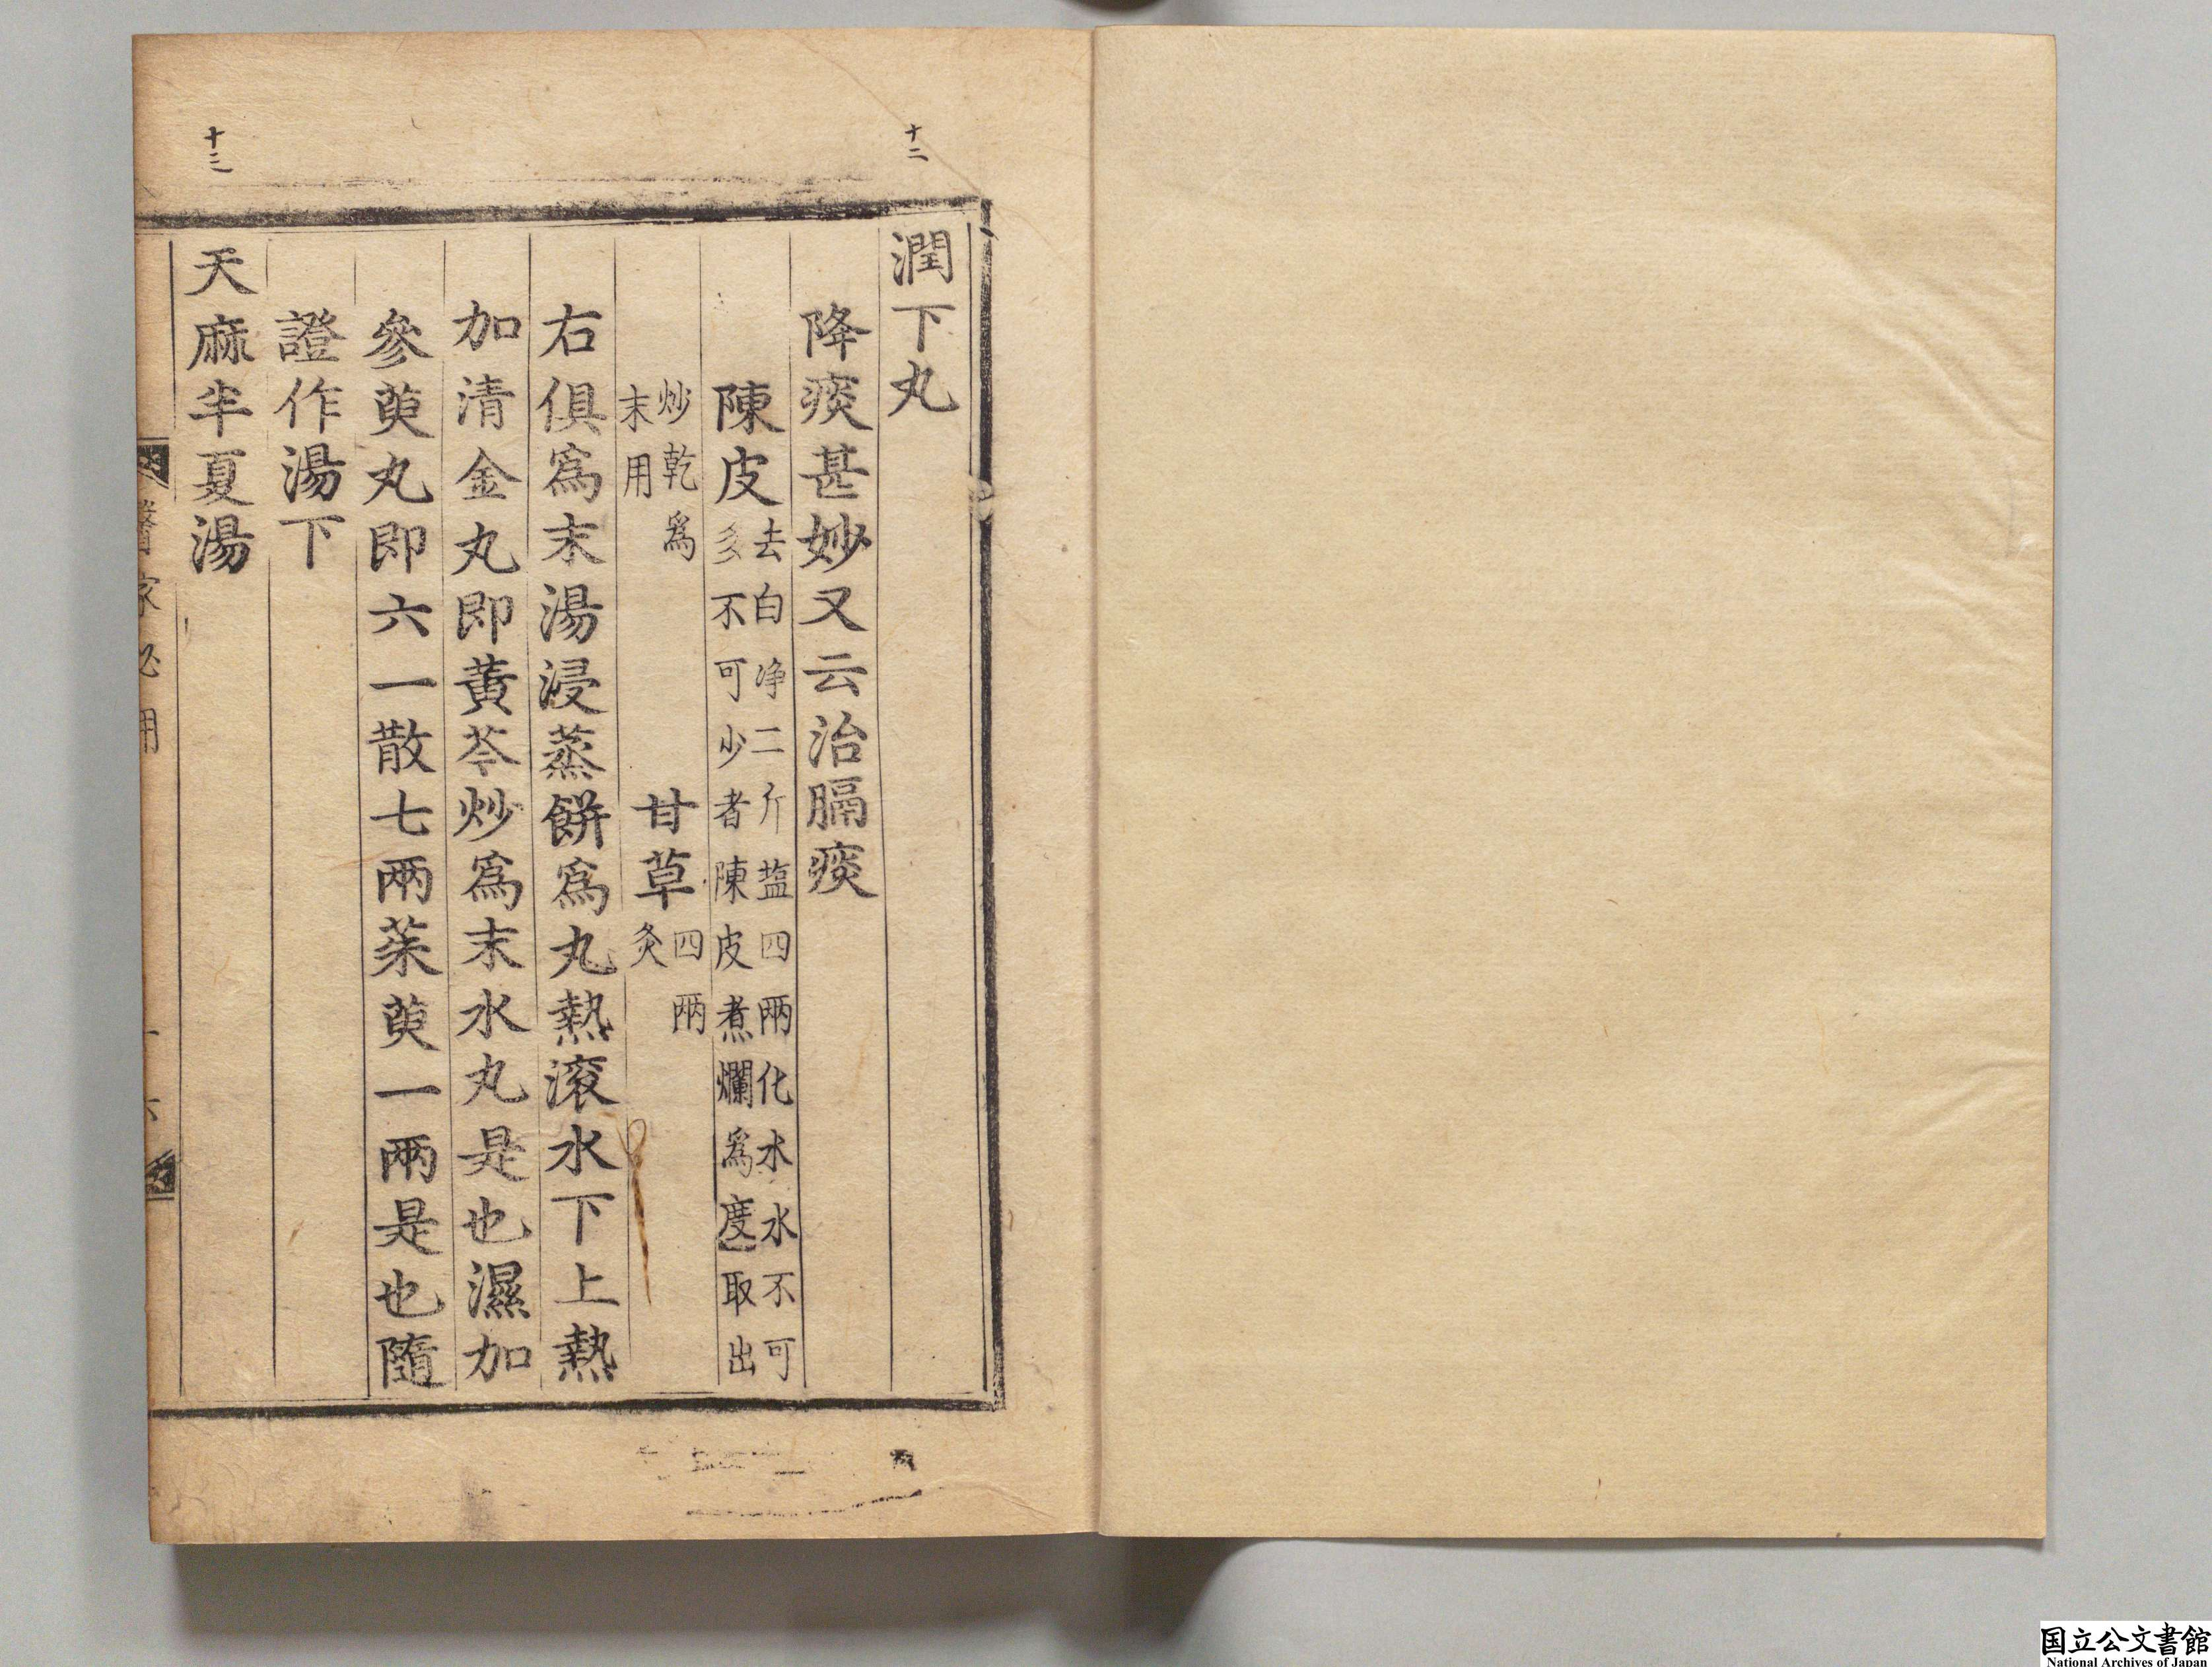 十二
潤下丸
降痰甚妙又云治膈痰
陳皮去白净二斤盐四兩化水水不可
多不可少者陳皮煮爛爲度取出
炒乾爲
末用
甘草四兩
炙
右俱爲末湯浸蒸餅爲丸熱滚水下上熱
加清金丸即黄芩炒爲末水丸是也濕加
參萸丸即六一散七兩茱萸一兩是也隨
證作湯下
十三
天麻半夏湯
醫家必用
国立公文書館
National Archives of Japan